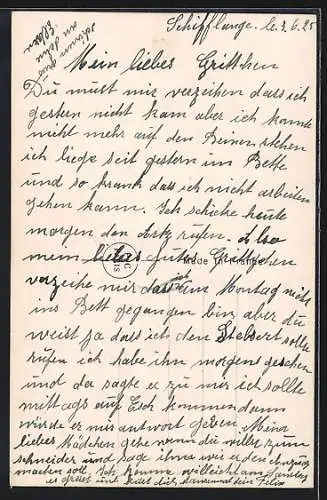 Schifflange. le. 3. 6. 25
einen
an deine
Eltern
Mein liebes Gritchen
Du must mir verzeihen dass ich
gestern nicht kam aber ich kannte
nicht mehr auf den Beinen stehen
ich liege seit gestern im Bette
und so krank dass ich nicht arbeiten
gehen kann. Ich schicke heute
morgen den Artz rufen. Also
mein liebes gutes Grittchen
Made in France
verzeihe mir dass ich am Montag nicht
ins Bett gegangen bin, aber du
weist ja dass ich den sollte
rufen ich habe ihn morgens gesehen
und da sagte er zu mir ich sollte
mittags auf Esch kommen dann
würde er mir antwort geben. Mein
liebes Mädchen gehe wenn du willst zum
schneider und sage ihm wie er den anzug
machen soll. Ich komme villeicht am Samstag
es grüsst und küsst dich tausend mal dein Felix